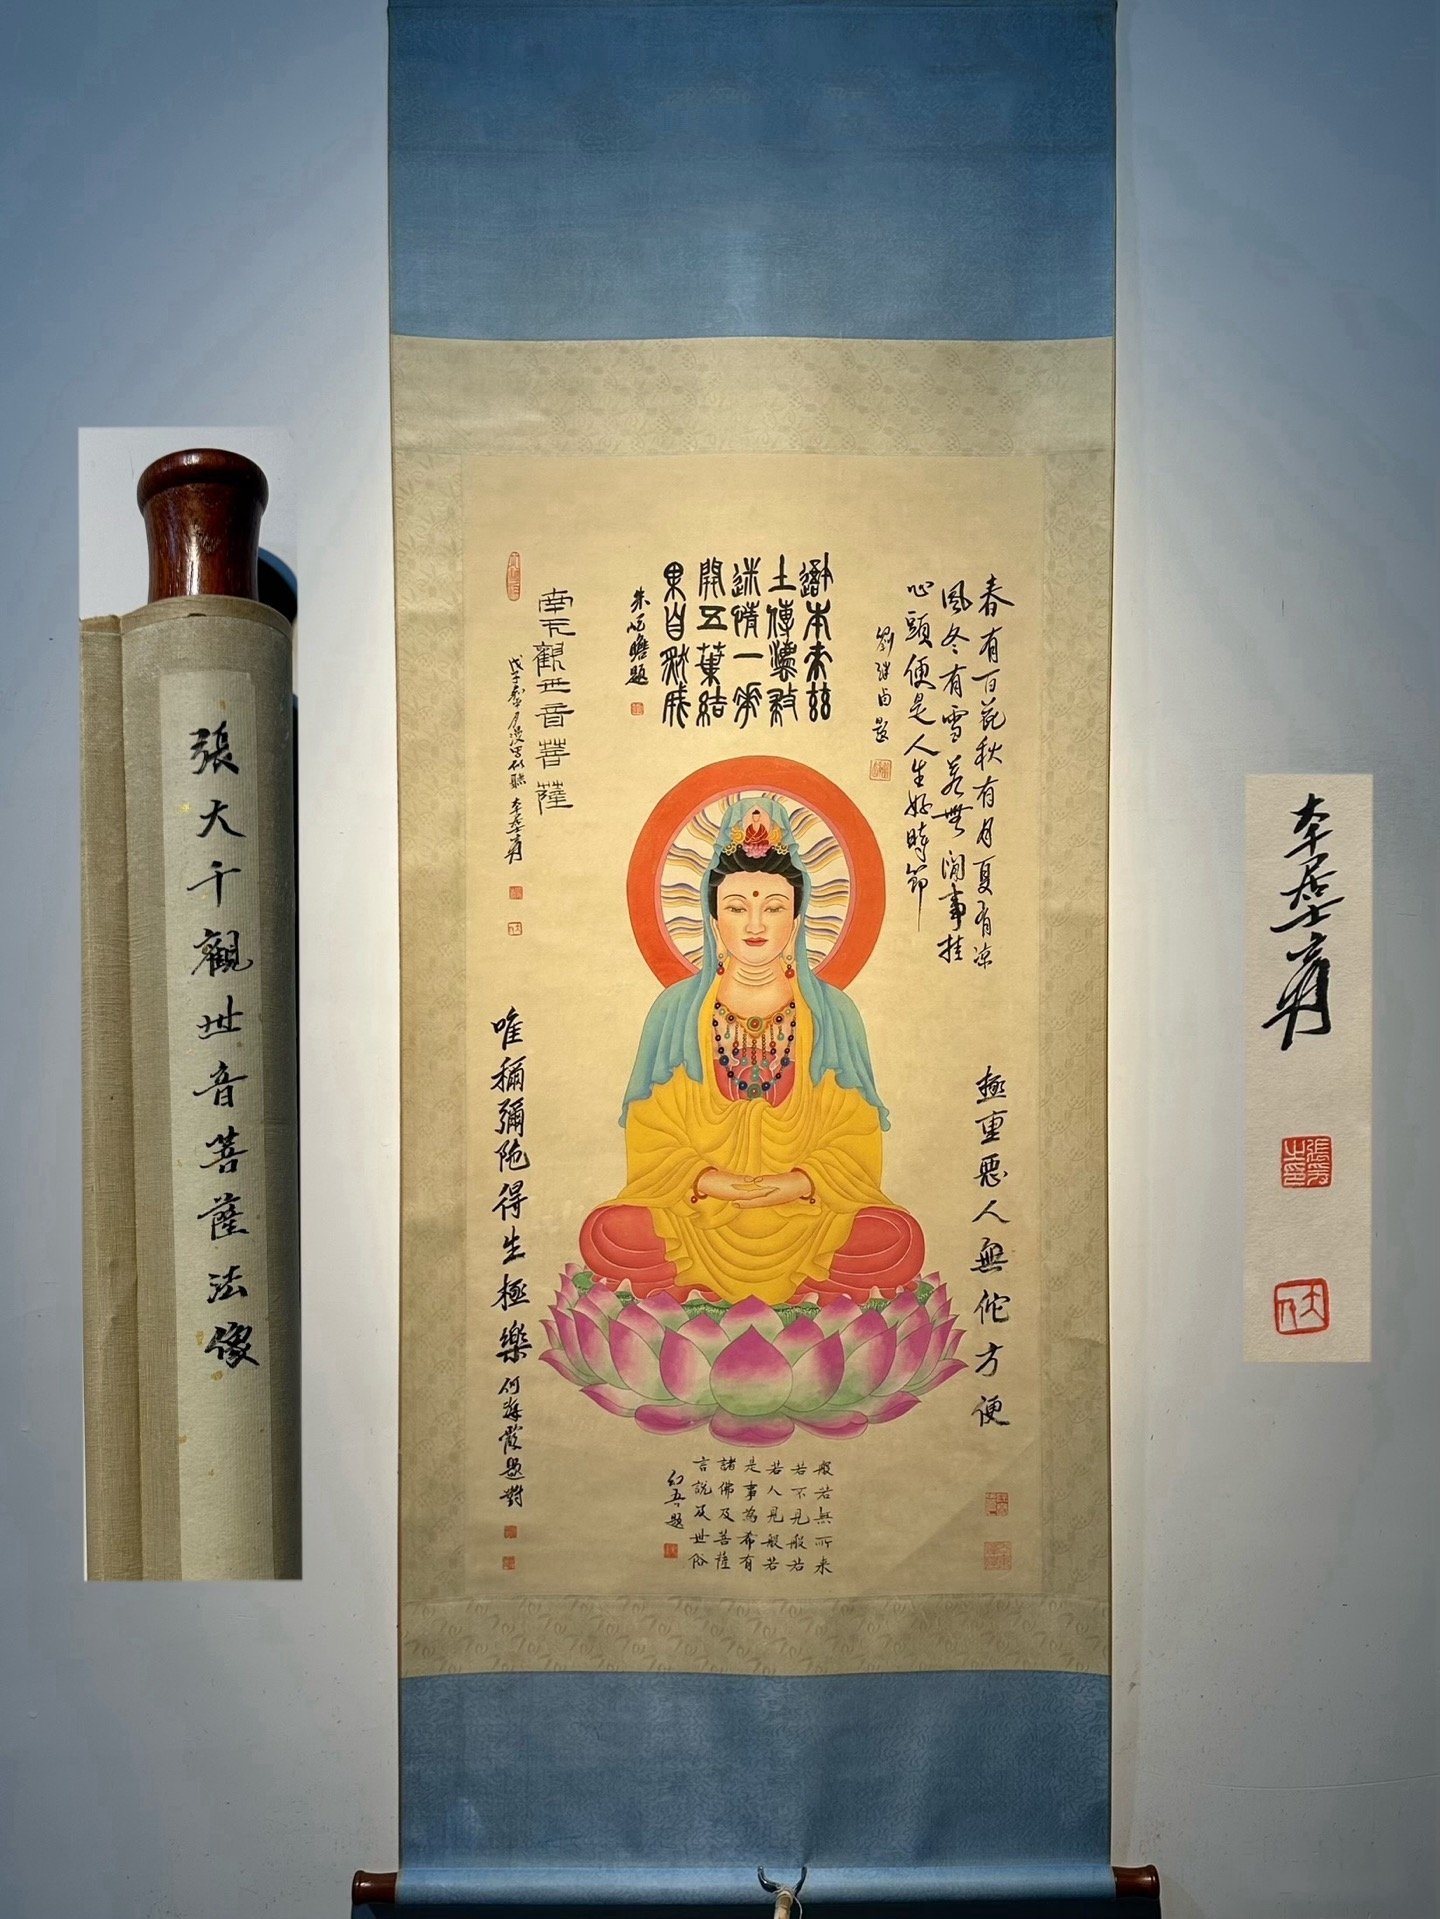 張大千觀世音菩薩法像
春有百花秋有月夏有涼
風冬有雪若無閒事挂
心頭便是人生好時節
劉繼卣題
吾本來茲
土傳法救
迷情一花
開五葉結
果自然成
朱屺瞻題
南无觀世音菩薩
大千居士爰
極重惡人無佗方便
唯稱彌陀得生極樂
何海霞題對
般若無所來
若不見般若
若人見般若
是事為希有
諸佛及菩薩
言說及世俗
幻吾題
大千居士爰
張爰
之印
大千